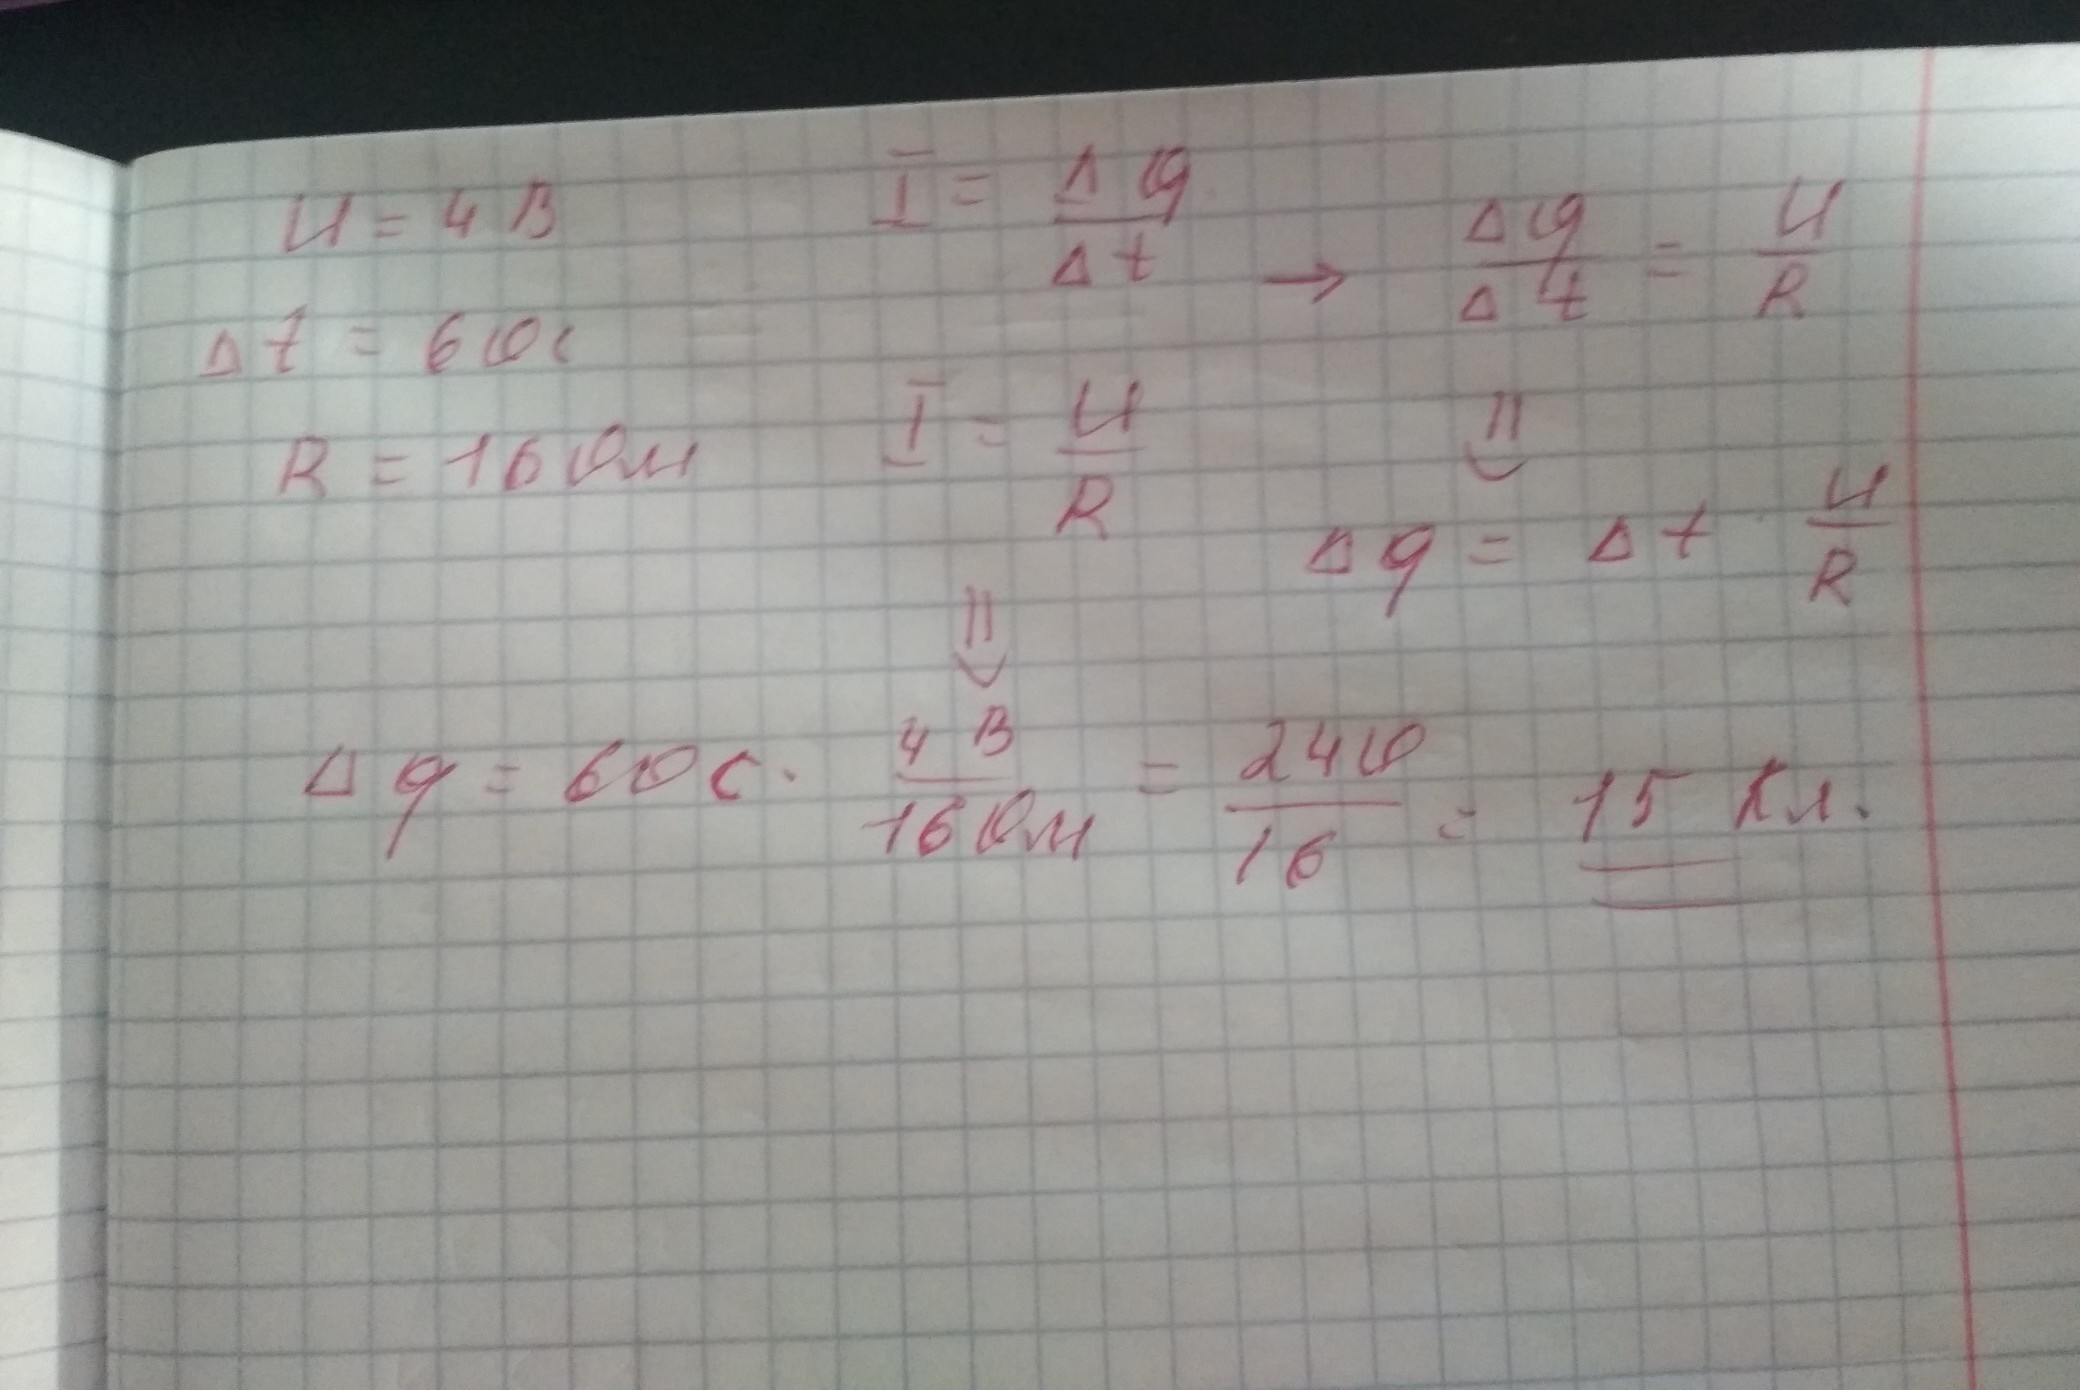 U = 4 В
Δt = 60с
R = 16 Ом
I = Δq / Δt → Δq / Δt = U / R
I = U / R
⇓
Δq = Δt U / R
⇓
Δq = 60 с · 4 В / 16 Ом = 240 / 16 = 15 Кл.